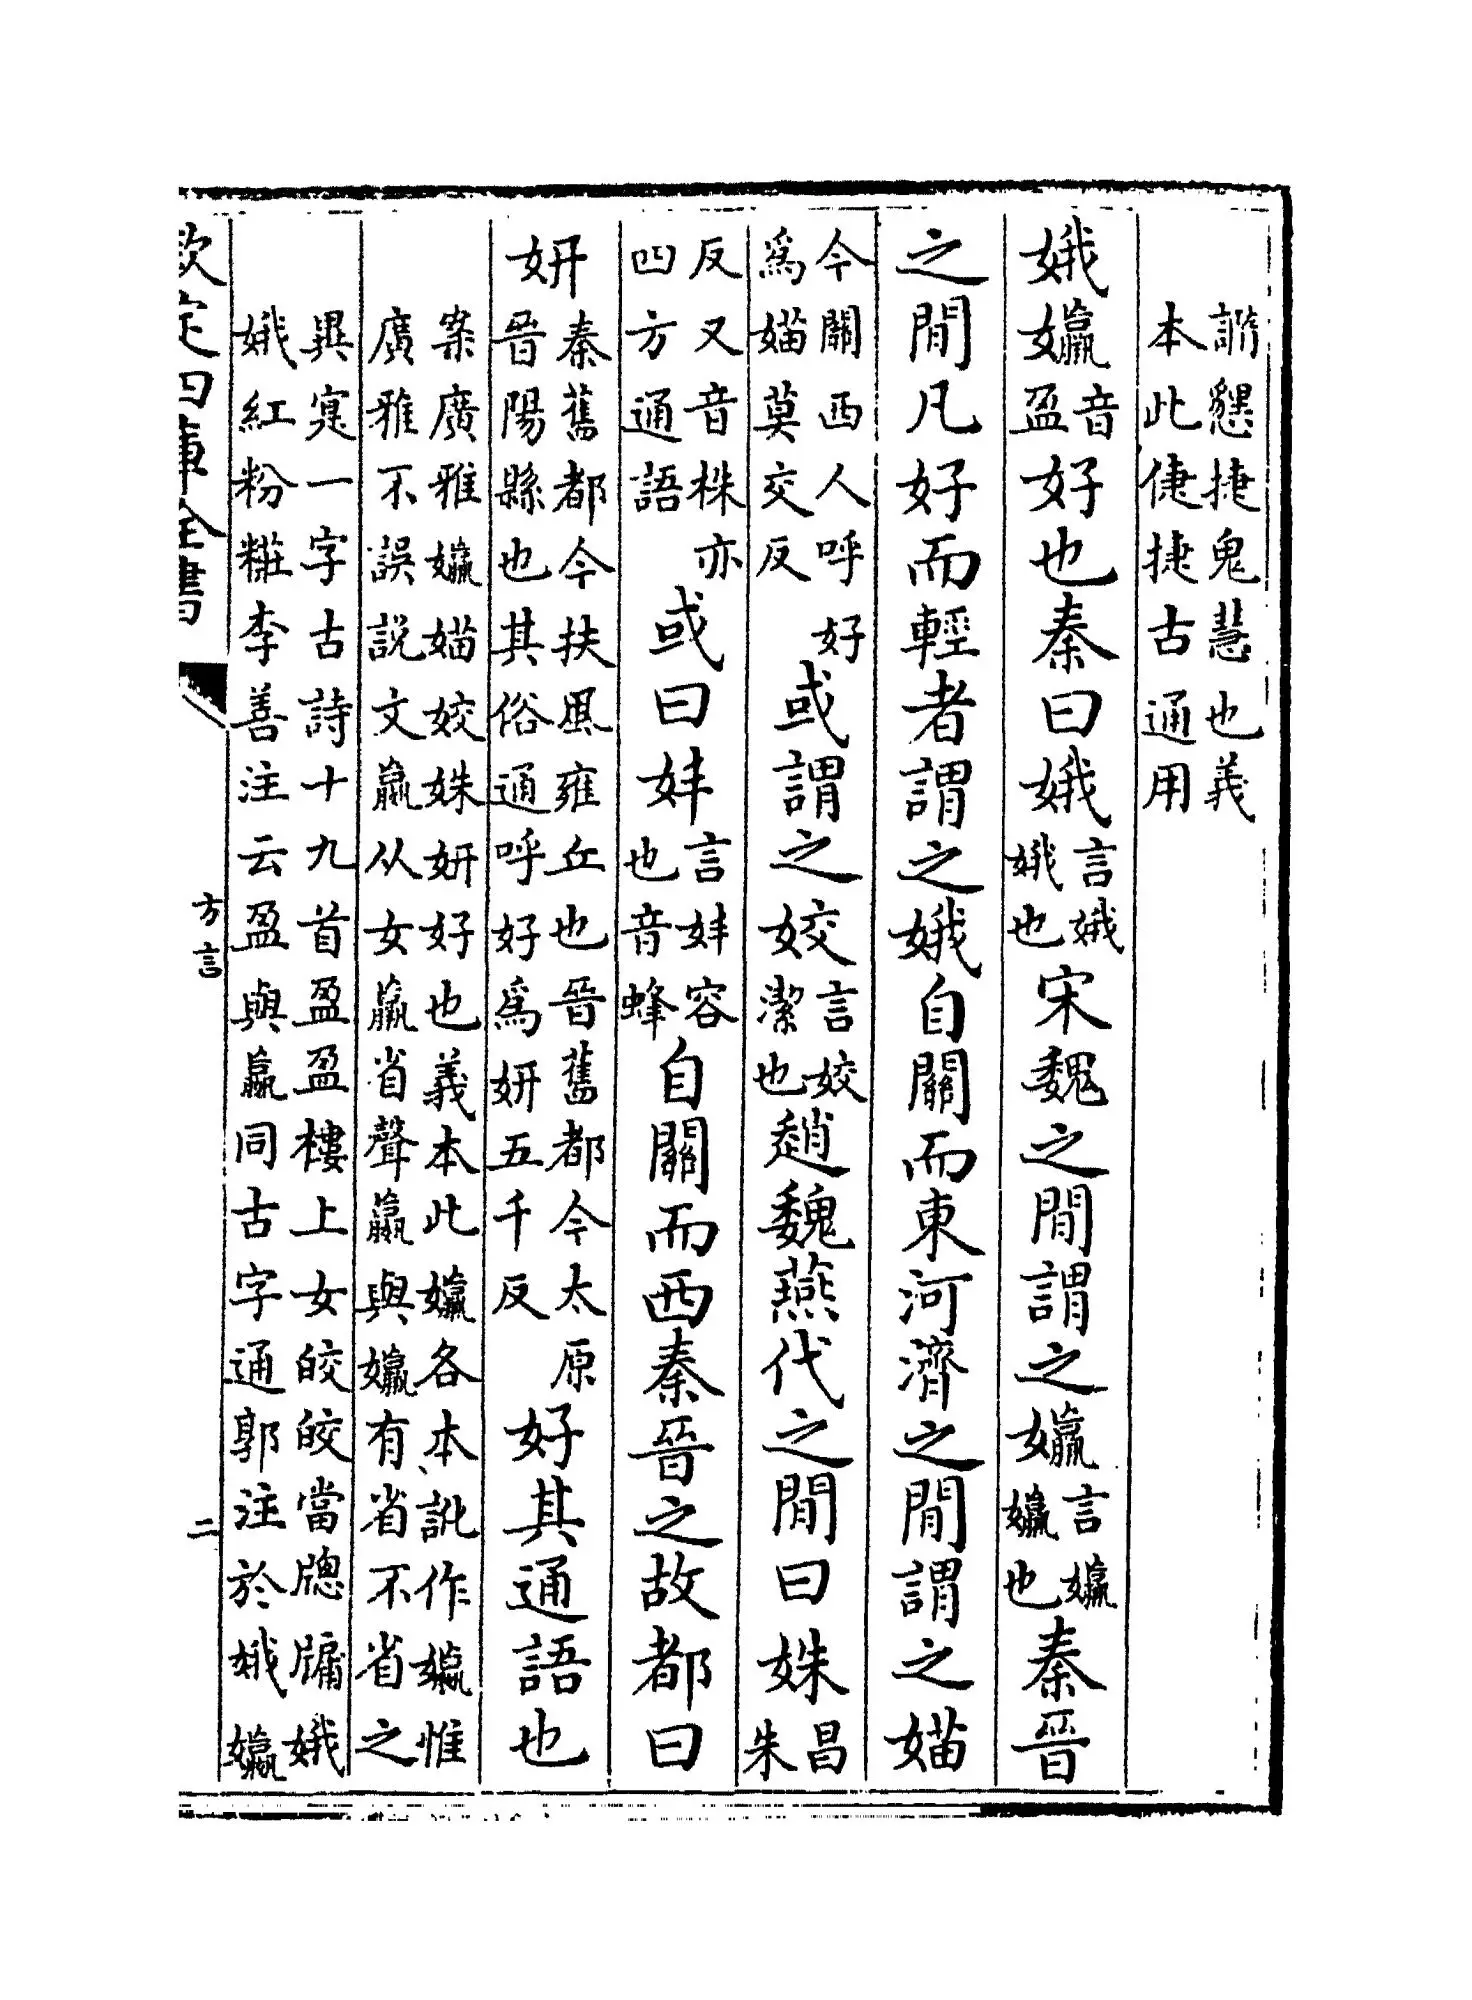 謆懇捷鬼慧也義
本此倢捷古通用
娥㜲音盈好也秦曰娥言娥娥也宋魏之間謂之㜲言㜲㜲也秦晉
之間凡好而輕者謂之娥自關而東河濟之間謂之媌
今關西人呼好為媌莫交反或謂之姣言姣潔也趙魏燕代之間曰姝昌朱
反又音株亦四方通語或曰妦言妦容也音蜂自關而西秦晉之故都曰
妍秦舊都今扶風雍丘也晉舊都今太原晉陽縣也其俗通呼好為妍五千反好其通語也
案廣雅㜲媌姣姝妍好也義本此㜲各本訛作㜲惟
廣雅不誤説文嬴从女羸省聲嬴與㜲有省不省之
異寔一字古詩十九首盈盈樓上女皎皎當牕牖娥
娥紅粉糚李善注云盈與嬴同古字通郭注於娥㜲
欽定四庫全書
方言
二